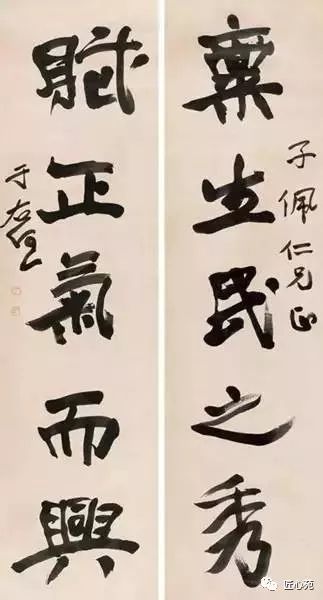 子佩仁兄正
稟生民之秀
賦正氣而興
于右任
匠心苑